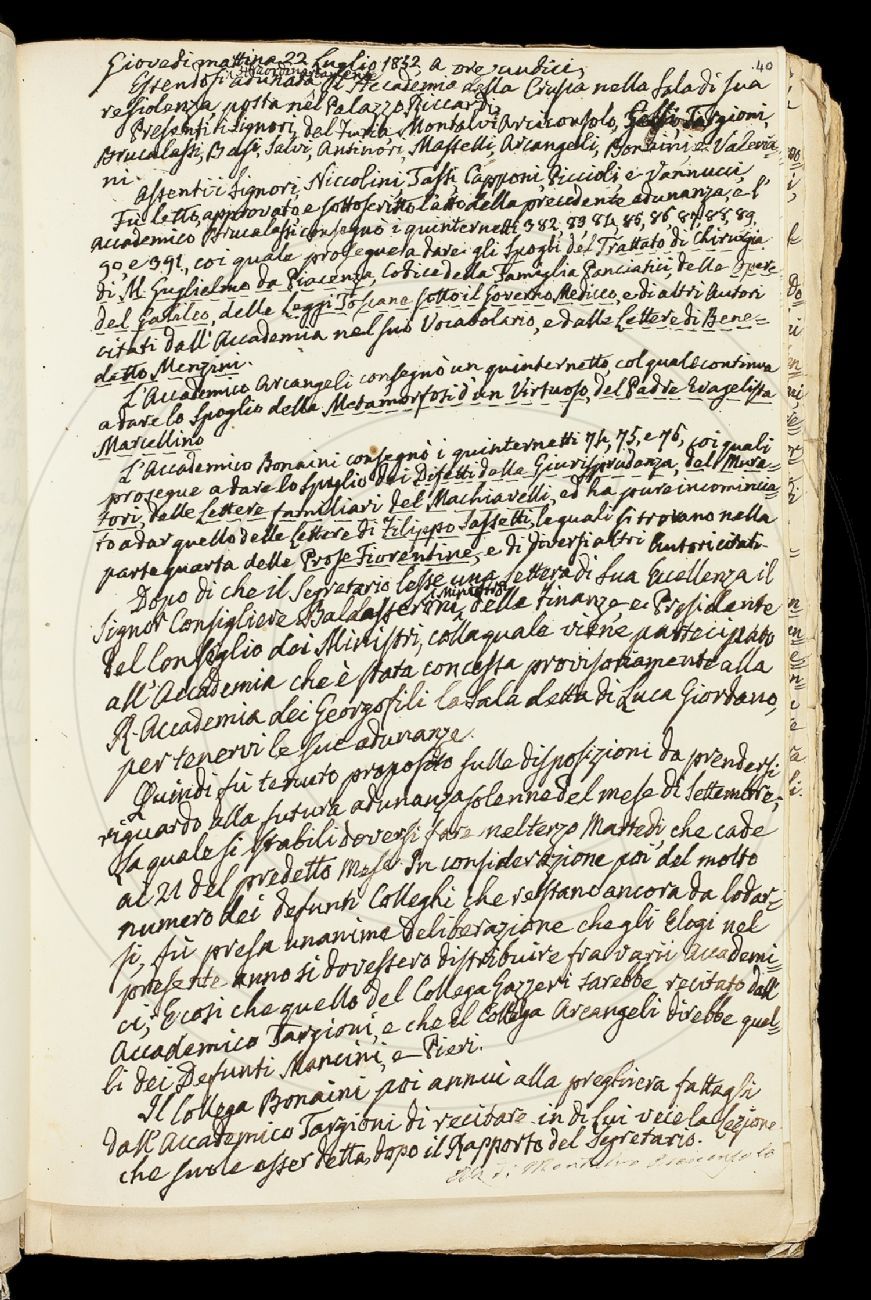 40
Giovedì mattina 22 Luglio 1852 a ore undici,
Essendosi straordinariamente adunata l'I. Accademia della Crusca nella Sala di sua
residenza, posta nel Palazzo Riccardi,
Presenti li Signori, del Furia, Montalvi Arciconsolo, Targioni,
Brucalassi, Salvi, Antinori, Masselli, Arcangeli, Bonaini, e Valeria=
ni.
Assenti i Signori, Niccolini, Capponi, Piccioli e Vannucci,
Fu letto, approvato e sottoscritto l'atto della precedente adunanza, e l'
Accademico Brucalassi consegnò i quinternetti 382, 83, 84, 85, 86, 87, 88, 89,
90, e 391, coi quale prosegue a dare gli Spogli del Trattato di Chirugia
di M. Guglielmo da Piacenza, Codice della Famiglia Panciatici, delle Opere
del Galileo, delle Leggi Toscane sotto il Governo Mediceo, e di altri Autori
citati dall'Accademia nel suo Vocabolario, e dalle Lettere di Bene=
detto Menzini.
L'Accademico Arcangeli consegnò un quinternetto, col quale continua
a dare lo Spoglio della Metamorfosi d'un Virtuoso, del Padre Evagelista
Marcellino
L'Accademico Bonaini consegnò i quinternetti 74, 75, e 76, coi quali
prosegue a dare lo Spoglio dei Difetti della Giurisprudenza, del Mura=
tori, delle Lettere familiari del Machiavelli, ed ha pure incomincia=
to a dar quello delle Lettere di Filippo Sassetti, le quali si trovano nella
parte quarta delle Prose Fiorentine, e di diversi altri Autori citati.
Dopo di che il Segretario lesse una Lettera di Sua Eccellenza il
Signor Consigliere Baldasseroni, Ministro delle Finanze, e Presidente
del Consiglio dei Ministri, colla quale viene partecipato
all'Accademia che è stata concessa provisoriamente alla
R. Accademia dei Georgofili la Sala detta di Luca Giordano,
per tenervi le sue adunanze.
Quindi fù tenuto proposito sulle disposizioni da prendersi
riguardo alla futura adunanza solenne del mese di Settembre,
la quale si stabilì doversi fare nel terzo Martedì, che cade
ai 21 del predetto Mese. In considerazione poi, del molto
numero dei defunti Colleghi che restano ancora da lodar=
si, fù presa unanime deliberazione che gli Elogi nel
presente anno si dovessero distribuire fra varii Accademi=
ci; E così che quello del Collega Gazzeri sarebbe recitato dall'
Accademico Targioni, e che il Collega Arcangeli direbbe quel=
li dei Defunti Mancini, e Pieri.
Il Collega Bonaini poi annuì alla preghiera fattagli
dall'Accademico Targioni di recitare in di lui vece la Lezione
che suole esser detta, dopo il Rapporto del Segretario.